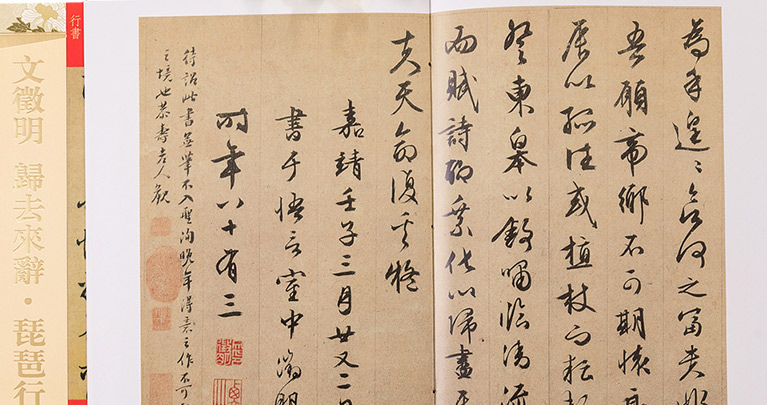 為乎遑遑欲何之富貴非
吾願帝鄉不可期懷良
辰以孤往或植杖而耘耔
登東皋以舒嘯臨清流
而賦詩聊乘化以歸盡
夫天命復奚疑
嘉靖壬子三月廿又二日
書于悟言室中徵明
時年八十有三
待詔此書筆不入聖洵晚年得意之作不可
之境也恭壽老人觀
行書
文徵明 歸去來辭·琵琶行